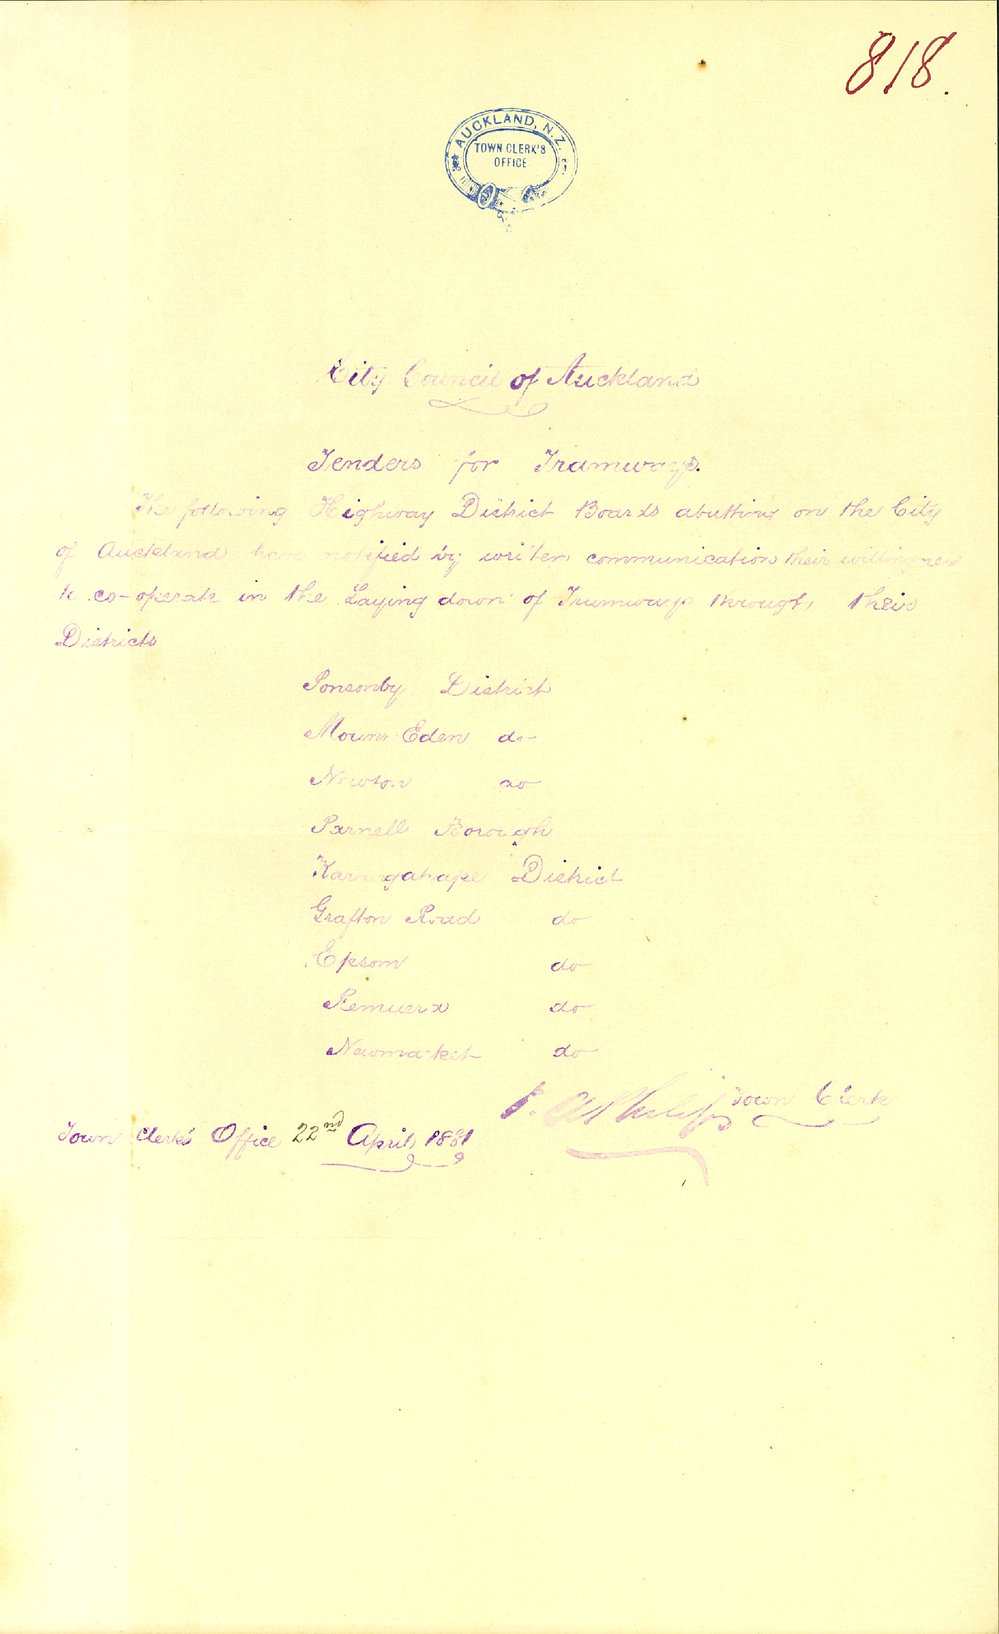 818.
AUCKLAND, N.Z.
TOWN CLERK'S
OFFICE
City Council of Auckland
Tenders for Tramways.
The following Highway District Boards abutting on the City
of Auckland have notified by writen communication their willingness
to co-operate in the Laying down of Tramways through their
Districts
Ponsonby District
Mount Eden do
Newton do
Parnell Borough
Karangahape District
Grafton Road do
Epsom do
Remuera do
Newmarket do
P. A. Philips Town Clerk
Town Clerk's Office 22nd April 1881